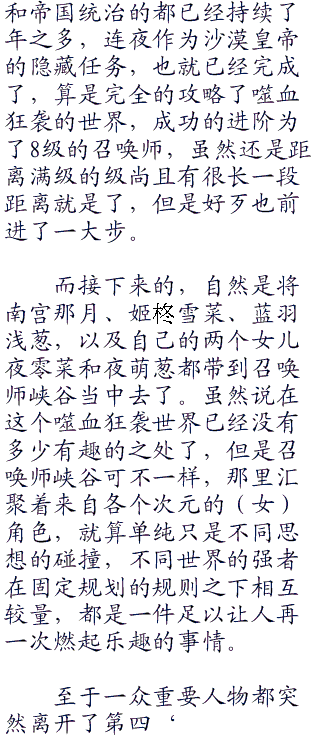 和帝国统治的都已经持续了
年之多，连夜作为沙漠皇帝
的隐藏任务，也就已经完成
了，算是完全的攻略了噬血
狂袭的世界，成功的进阶为
了8级的召唤师，虽然还是距
离满级的级尚且有很长一段
距离就是了，但是好歹也前
进了一大步。
而接下来的，自然是将
南宫那月、姬柊雪菜、蓝羽
浅葱，以及自己的两个女儿
夜零菜和夜萌葱都带到召唤
师峡谷当中去了。虽然说在
这个噬血狂袭世界已经没有
多少有趣的之处了，但是召
唤师峡谷可不一样，那里汇
聚着来自各个次元的（女）
角色，就算单纯只是不同思
想的碰撞，不同世界的强者
在固定规划的规则之下相互
较量，都是一件足以让人再
一次燃起乐趣的事情。
至于一众重要人物都突
然离开了第四‘